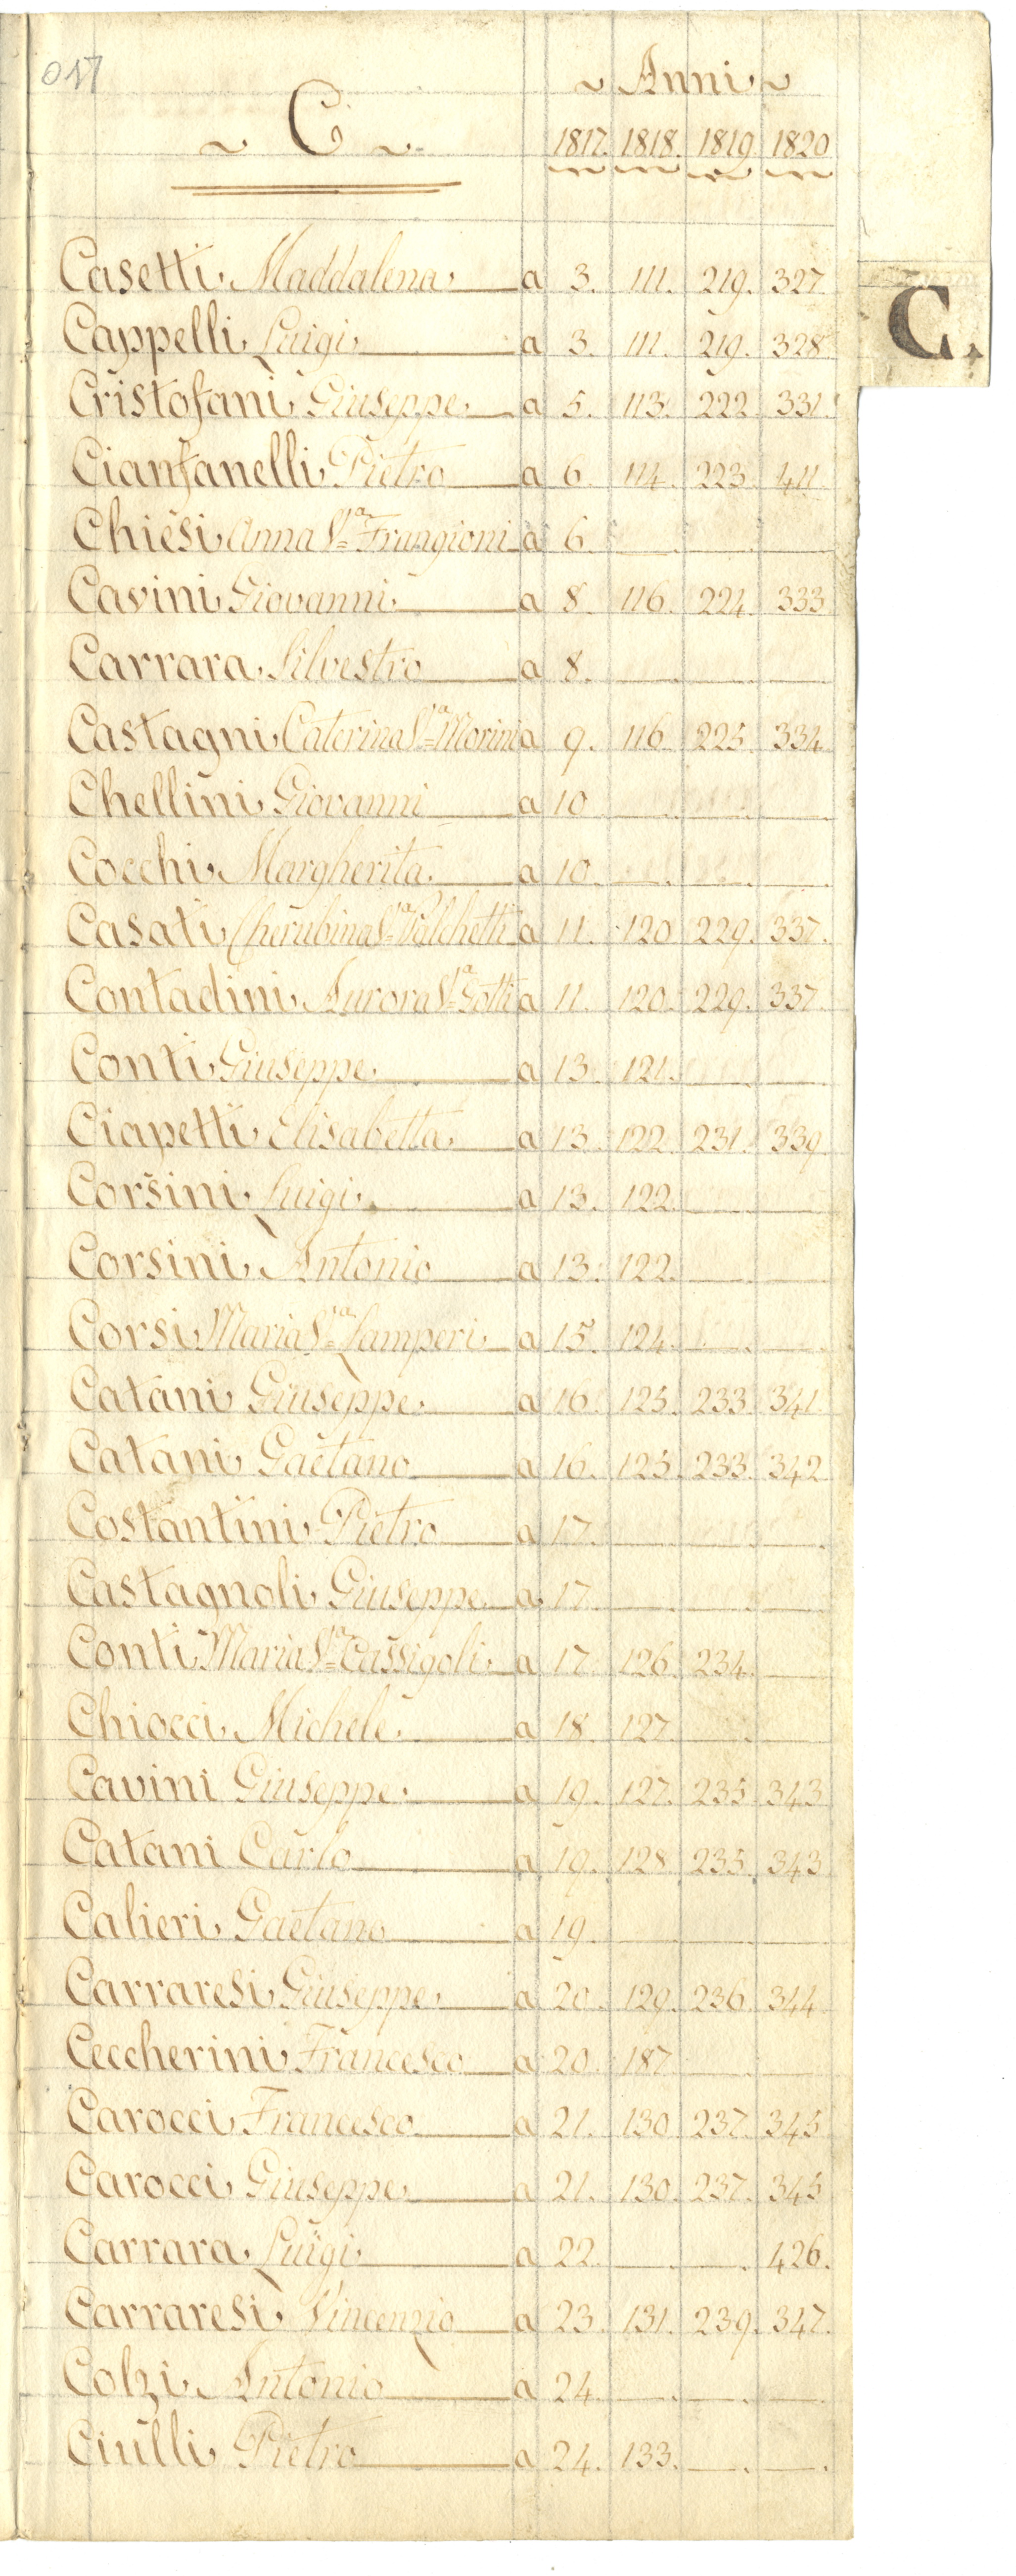 017
~ Anni ~
~ C. ~
1817. 1818. 1819. 1820
C.
Casetti Maddalena a 3. 111. 219. 327
Cappelli Luigi a 3. 111. 219. 328
Cristofani Giuseppe a 5. 113. 222 331.
Cianfanelli Pietro a 6. 114. 223. 411
Chiesi Anna Va Frangioni a 6
Cavini Giovanni a 8. 116. 224. 333
Carrara Silvestro a 8.
Castagni Caterina Va Morini a 9. 116. 225. 334.
Chellini Giovanni a 10
Cocchi Margherita a 10.
Casati Cherubina Va a 11. 120 229. 337.
Contadini Aurora Va Gotti a 11. 120. 229. 337
Conti Giuseppe a 13. 121.
Ciapetti Elisabetta a 13. 122. 231. 339
Corsini Luigi a 13. 122.
Corsini Antonio a 13. 122.
Corsi Maria Va Lamperi a 15. 124.
Catani Giuseppe a 16. 125. 233. 341.
Catani Gaetano a 16. 125. 233. 342
Costantini Pietro a 17
Castagnoli Giuseppe a 17
Conti Maria Va Cassigoli a 17. 126. 234.
Chiocci Michele a 18. 127.
Cavini Giuseppe a 19. 127. 235. 343
Catani Carlo a 19. 128. 235. 343
Calieri Gaetano a 19
Carraresi Giuseppe a 20. 129. 236. 344
Ceccherini Francesco a 20. 187
Carocci Francesco a 21. 130. 237. 345
Carocci Giuseppe a 21. 130. 237. 345
Carrara Luigi a 22. 426.
Carraresi Vincenzio a 23. 131. 239. 347.
Colzi Antonio a 24.
Ciulli Pietro a 24. 133.